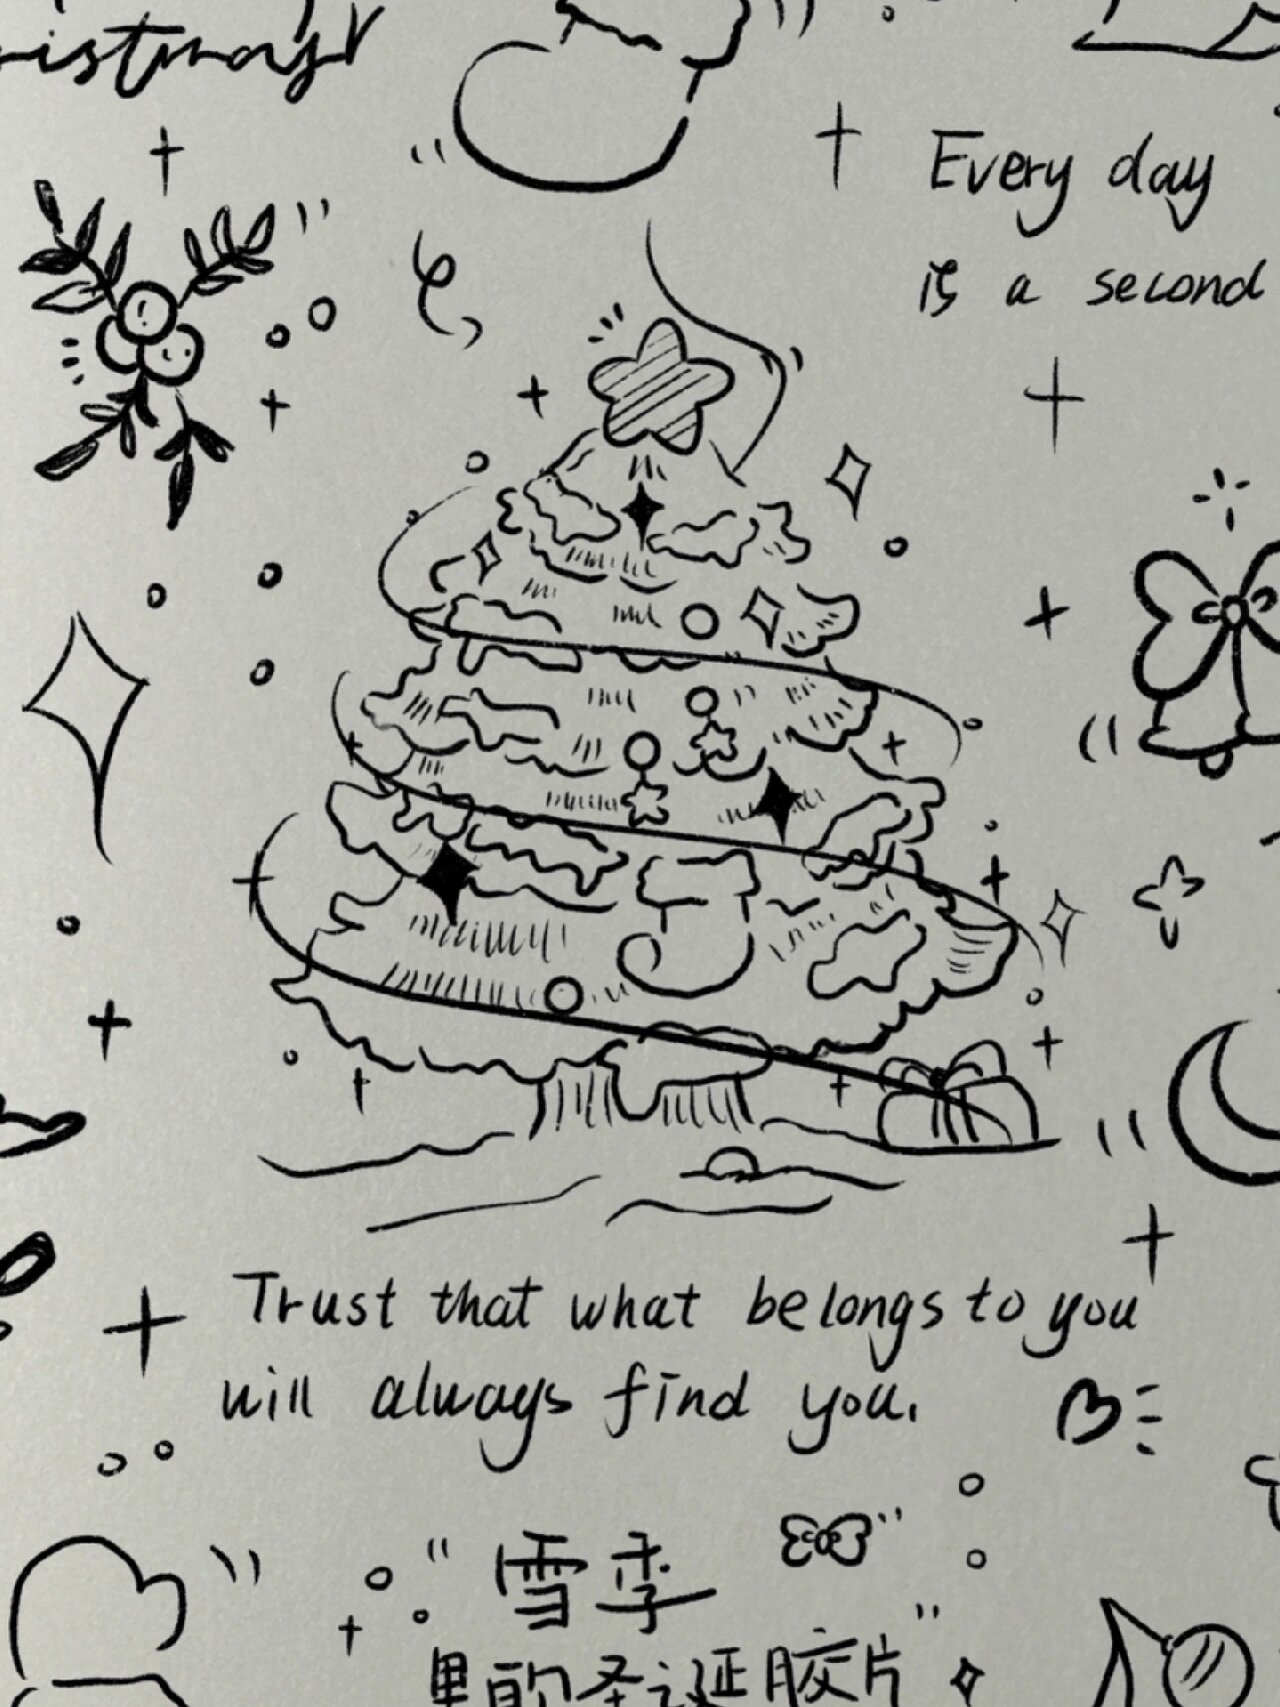 Every day
is a second
Trust that what belongs to you
will always find you.
雪季
里的圣诞胶片